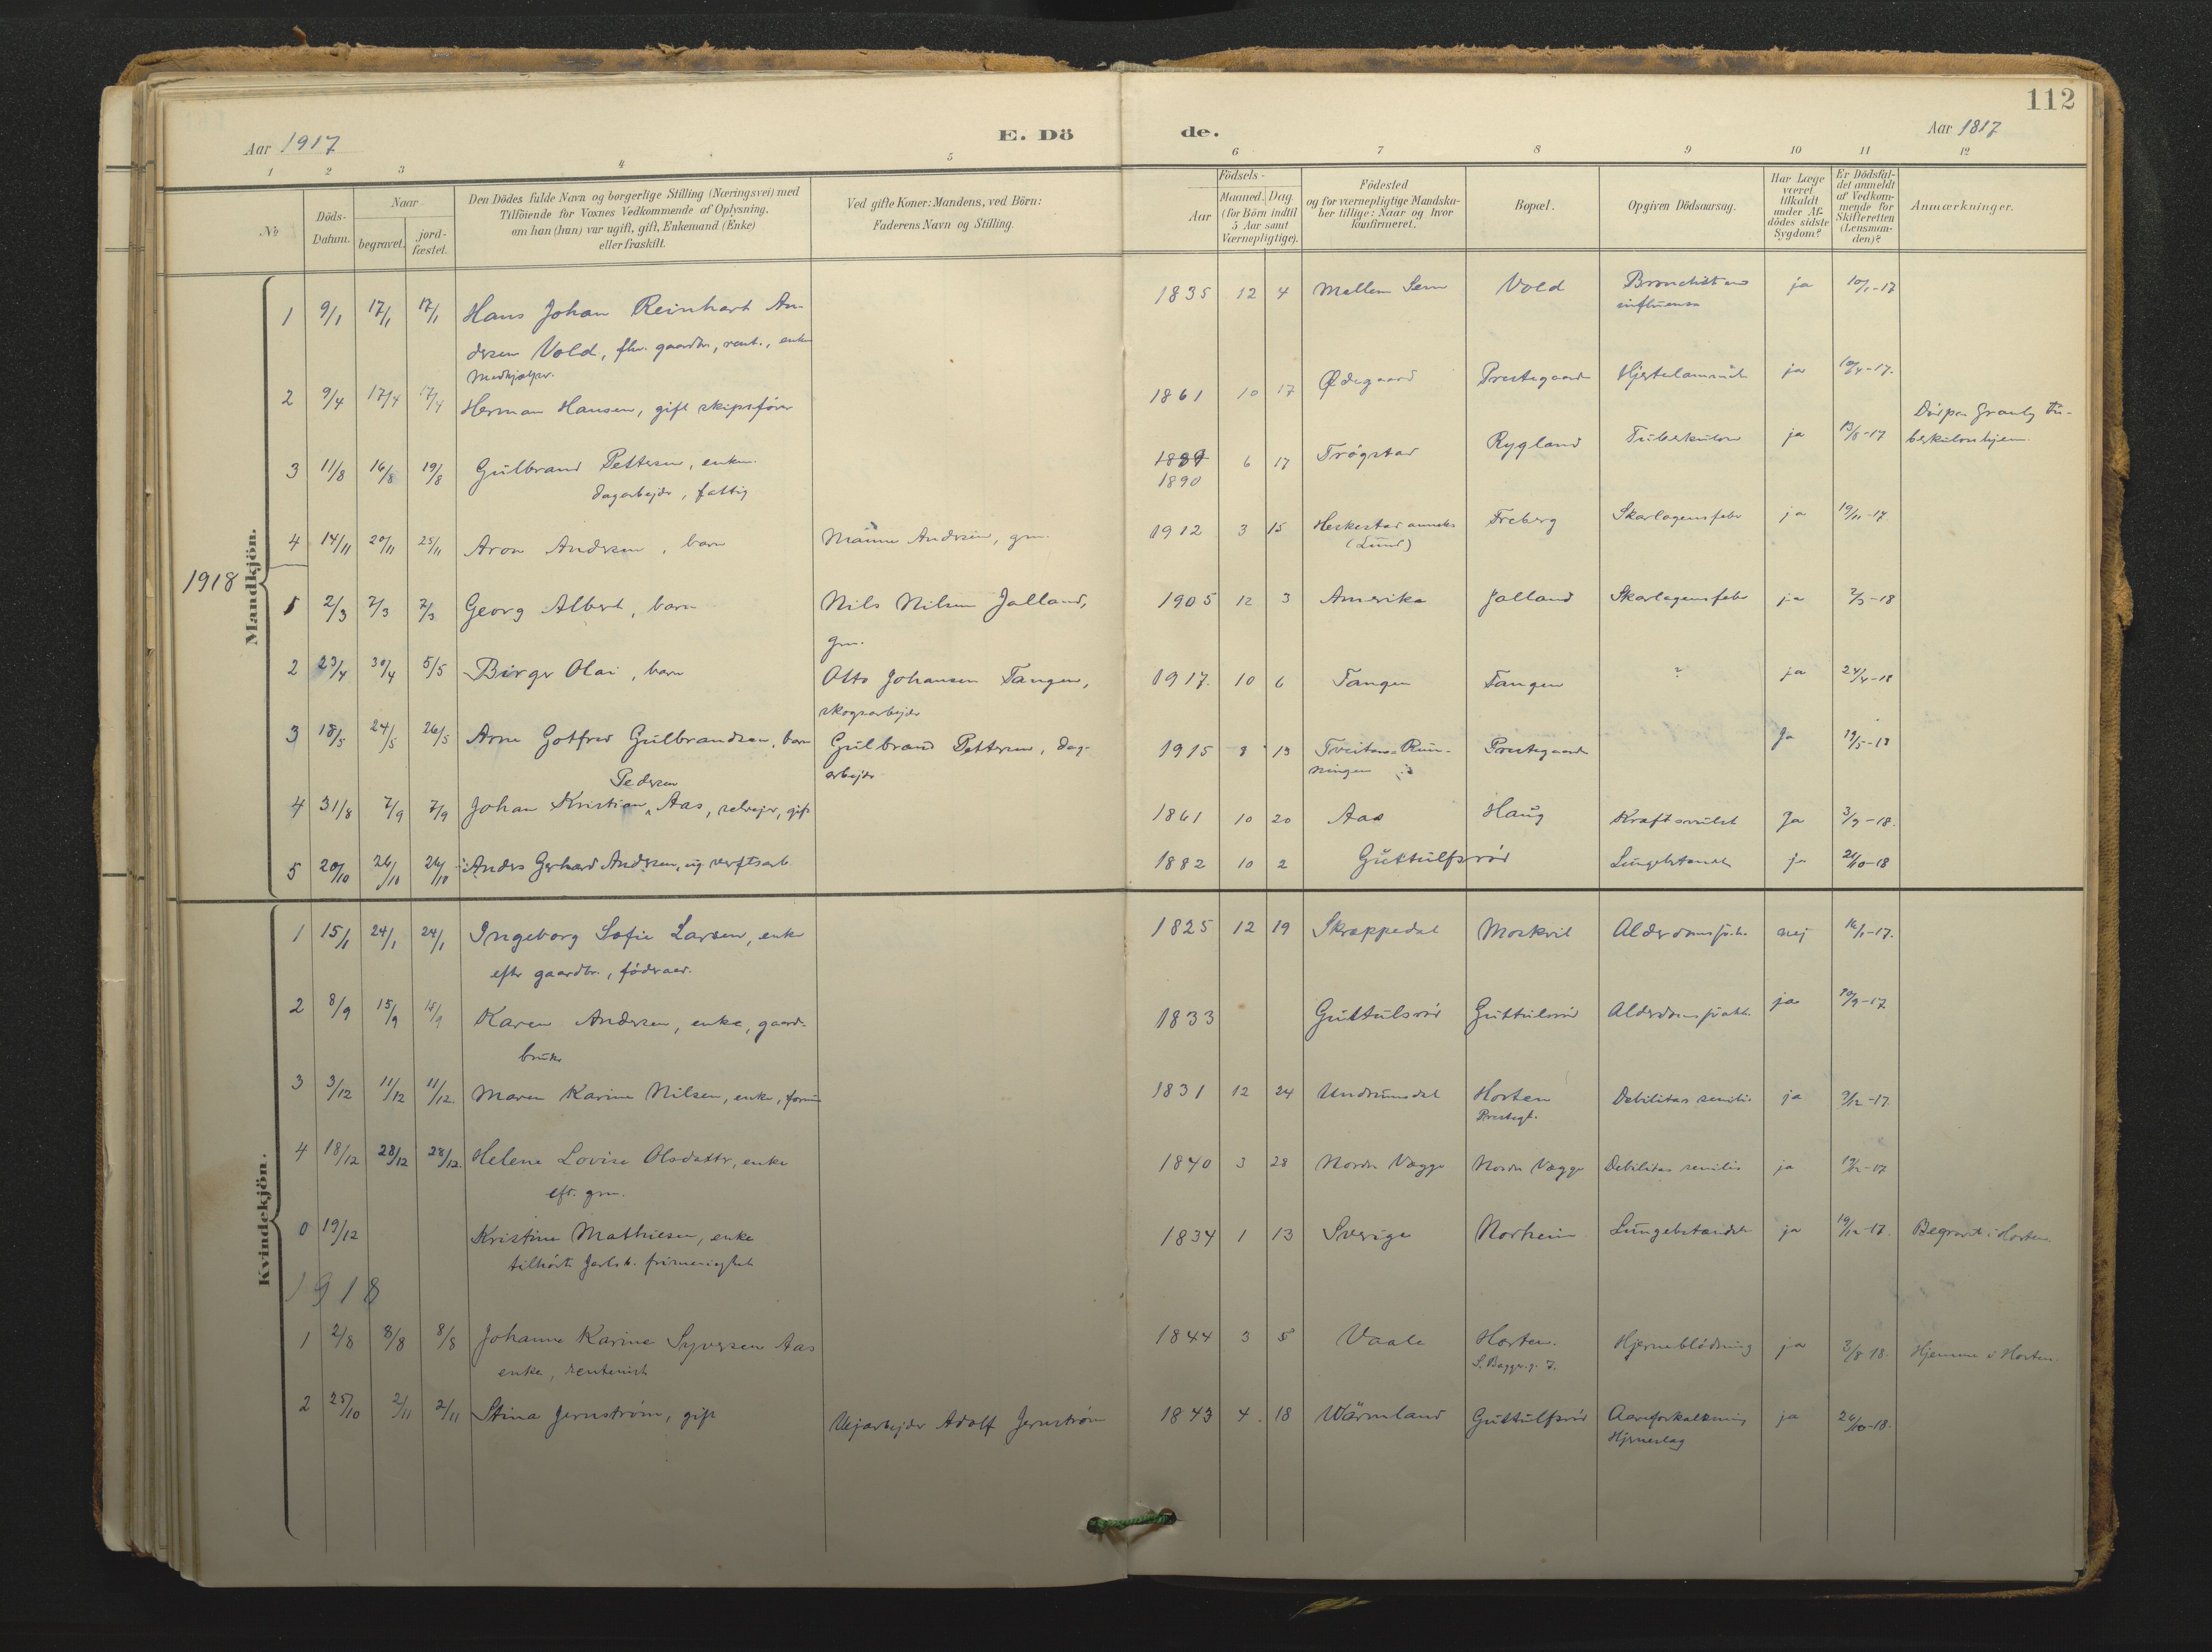 112
Aar 1917
E. Dö
de.
Aar 1817
1 2 3 4 5 6 7 8 9 10 11 12
No
Döds-
Datum.
Naar
begravet.
jord-
fæstet.
Den Dödes fulde Navn og borgerlige Stilling (Næringsvei) med
Tilföiende for Voxnes Vedkommende af Oplysning,
om han (hun) var ugift, gift, Enkemand (Enke)
eller fraskilt.
Ved gifte Koner: Mandens, ved Börn:
Faderens Navn og Stilling.
Födsels-
Aar
Maaned. Dag.
(for Börn indtil
5 Aar samt
Værnepligtige).
Födested
og for værnepligtige Mandska-
ber tillige: Naar og hvor
konfirmeret.
Bopæl.
Opgiven Dödsaarsag.
Har Læge
været
tilkaldt
under Af-
dödes sidste
Sygdom?
Er Dödsfal-
det anmeldt
af Vedkom-
mende for
Skifteretten
(Lensman-
den)?
Anmærkninger.
Mandkjön.
1 9/1 17/1 17/1 Hans Johan Reinhart An- 1835 12 4 Mellem Sem Vold ja 10/1-17
dersen Vold, fhv. gaardbr., rent., enkem
influensa
Medhjælper.
2 9/4 17/4 17/4 Herman Hansen, gift skipsfører 1861 10 17 Ødegaard Prestegaarden ja 10/4-17.
3 11/8 16/8 19/8 Gulbrand Pettersen, enkem. 1889 6 17 Trøgstad Rygland Tuberkulose ja 13/8-17
dagarbejder, fattig 1890
4 14/11 20/11 25/11 Aron Andersen, barn Andersen, gm. 1912 3 15 Heskestad anneks Freberg Skarlagensfeber ja 19/11-17
(Lund)
1918
1 2/3 7/3 7/3 Georg Albert, barn Nils Nilsen Jalland, 1905 12 3 Amerika Jalland Skarlagensfeber ja 2/3-18
gm.
2 23/4 30/4 5/5 Birger Olai, barn Otto Johansen Tangen, 1917. 10 6 Tangen Tangen ? ja 24/4-18
skogsarbejder
3 18/5 24/5 26/5 Arne Gotfred Gulbrandsen, barn Gulbrand Pettersen, dag- 1915 8 13 Prestegaarden Ja 19/5-18
arbejder
Pedersen
4 31/8 7/9 7/9 Johan Kristian Aas, selvejer, gift 1861 10 20 Aas Haug Kraftsvulst Ja 3/9-18.
5 20/10 26/10 26/10 Anders Gerhard Andersen, ug verftsarb 1882 10 2 Guttulfsrød Lungebetændelse ja 21/10-18
Kvindekjön.
1 15/1 24/1 24/1 Ingeborg Sofie Larsen, enke 1825 12 19 Skreppedal Moskvil nej 16/1-17.
efter gaardbr., føderaad.
2 8/9 15/9 15/9 Karen Andersen, enke, gaard- 1833 Guttulsrød Guttulsrød ja 10/9-17
bruker
3 3/12 11/12 11/12 Maren Karine Nilsen, enke, 1831 12 24 Undrumsdal Horten Debilitas senilis ja 3/12-17
Prestegt.
4 18/12 28/12 28/12. Helene Lovise Olsdatter, enke 1840 3 28 Nordre Vegge Nordre Vegge Debilitas senilis ja 19/12-17
eft. gm.
0 19/12 Kristine Mathiesen, enke 1834 1 13 Sverige Norheim Lungebetændelse ja 19/12-17. Begravet i Horten.
tilhørte Jarlsb. frimenighet
1918
1 2/8 8/8 8/8 Johanne Karine Syversen Aas 1844 3 5 Vaale Horten. Hjerneblødning ja 3/8 18. Hjemme i Horten.
enke, rentenist
2 25/10 2/11 2/11 Stina Jernstrøm, gift Adolf Jernstrøm 1843 4. 18 Wärmland Guttulfsrød Aareforkalkning ja 26/10-18.
Hjerneslag